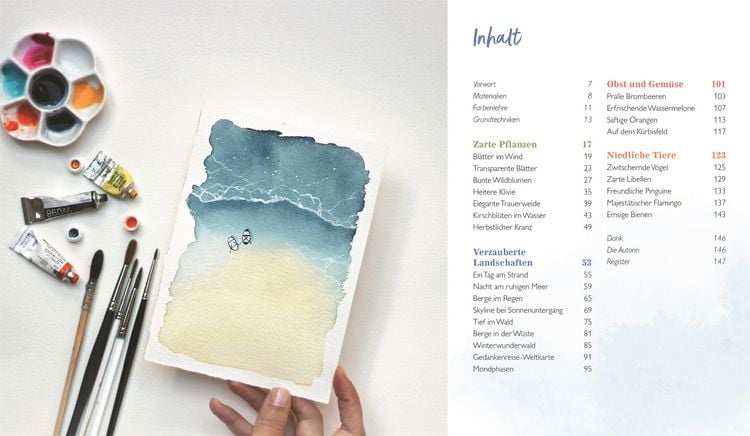 Inhalt
Vorwort 7
Materialien 8
Farbenlehre 11
Grundtechniken 13
Zarte Pflanzen 17
Blätter im Wind 19
Transparente Blätter 23
Bunte Wildblumen 27
Heitere Klivie 35
Elegante Trauerweide 39
Kirschblüten im Wasser 43
Herbstlicher Kranz 49
Verzauberte
Landschaften 53
Ein Tag am Strand 55
Nacht am ruhigen Meer 59
Berge im Regen 65
Skyline bei Sonnenuntergang 69
Tief im Wald 75
Berge in der Wüste 81
Winterwunderwald 85
Gedankenreise-Weltkarte 91
Mondphasen 95
Obst und Gemüse 101
Pralle Brombeeren 103
Erfrischende Wassermelone 107
Saftige Orangen 113
Auf dem Kürbisfeld 117
Niedliche Tiere 123
Zwitschernde Vögel 125
Zarte Libellen 129
Freundliche Pinguine 133
Majestätischer Flamingo 137
Emsige Bienen 143
Dank 146
Die Autorin 146
Register 147